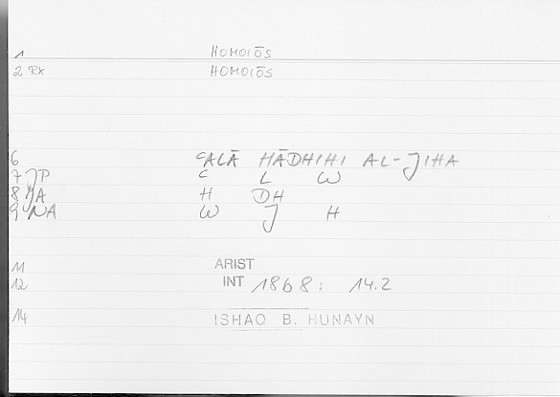 1 HOMOIŌS
2 RX HOMOIŌS
6 ʿALĀ HĀDHIHI AL-JIHA
7 JP ʿ L W
8 JA H DH
9 NA W J H
11 ARIST
12 INT 18b8: 14.2
14 ISHAQ B. HUNAYN